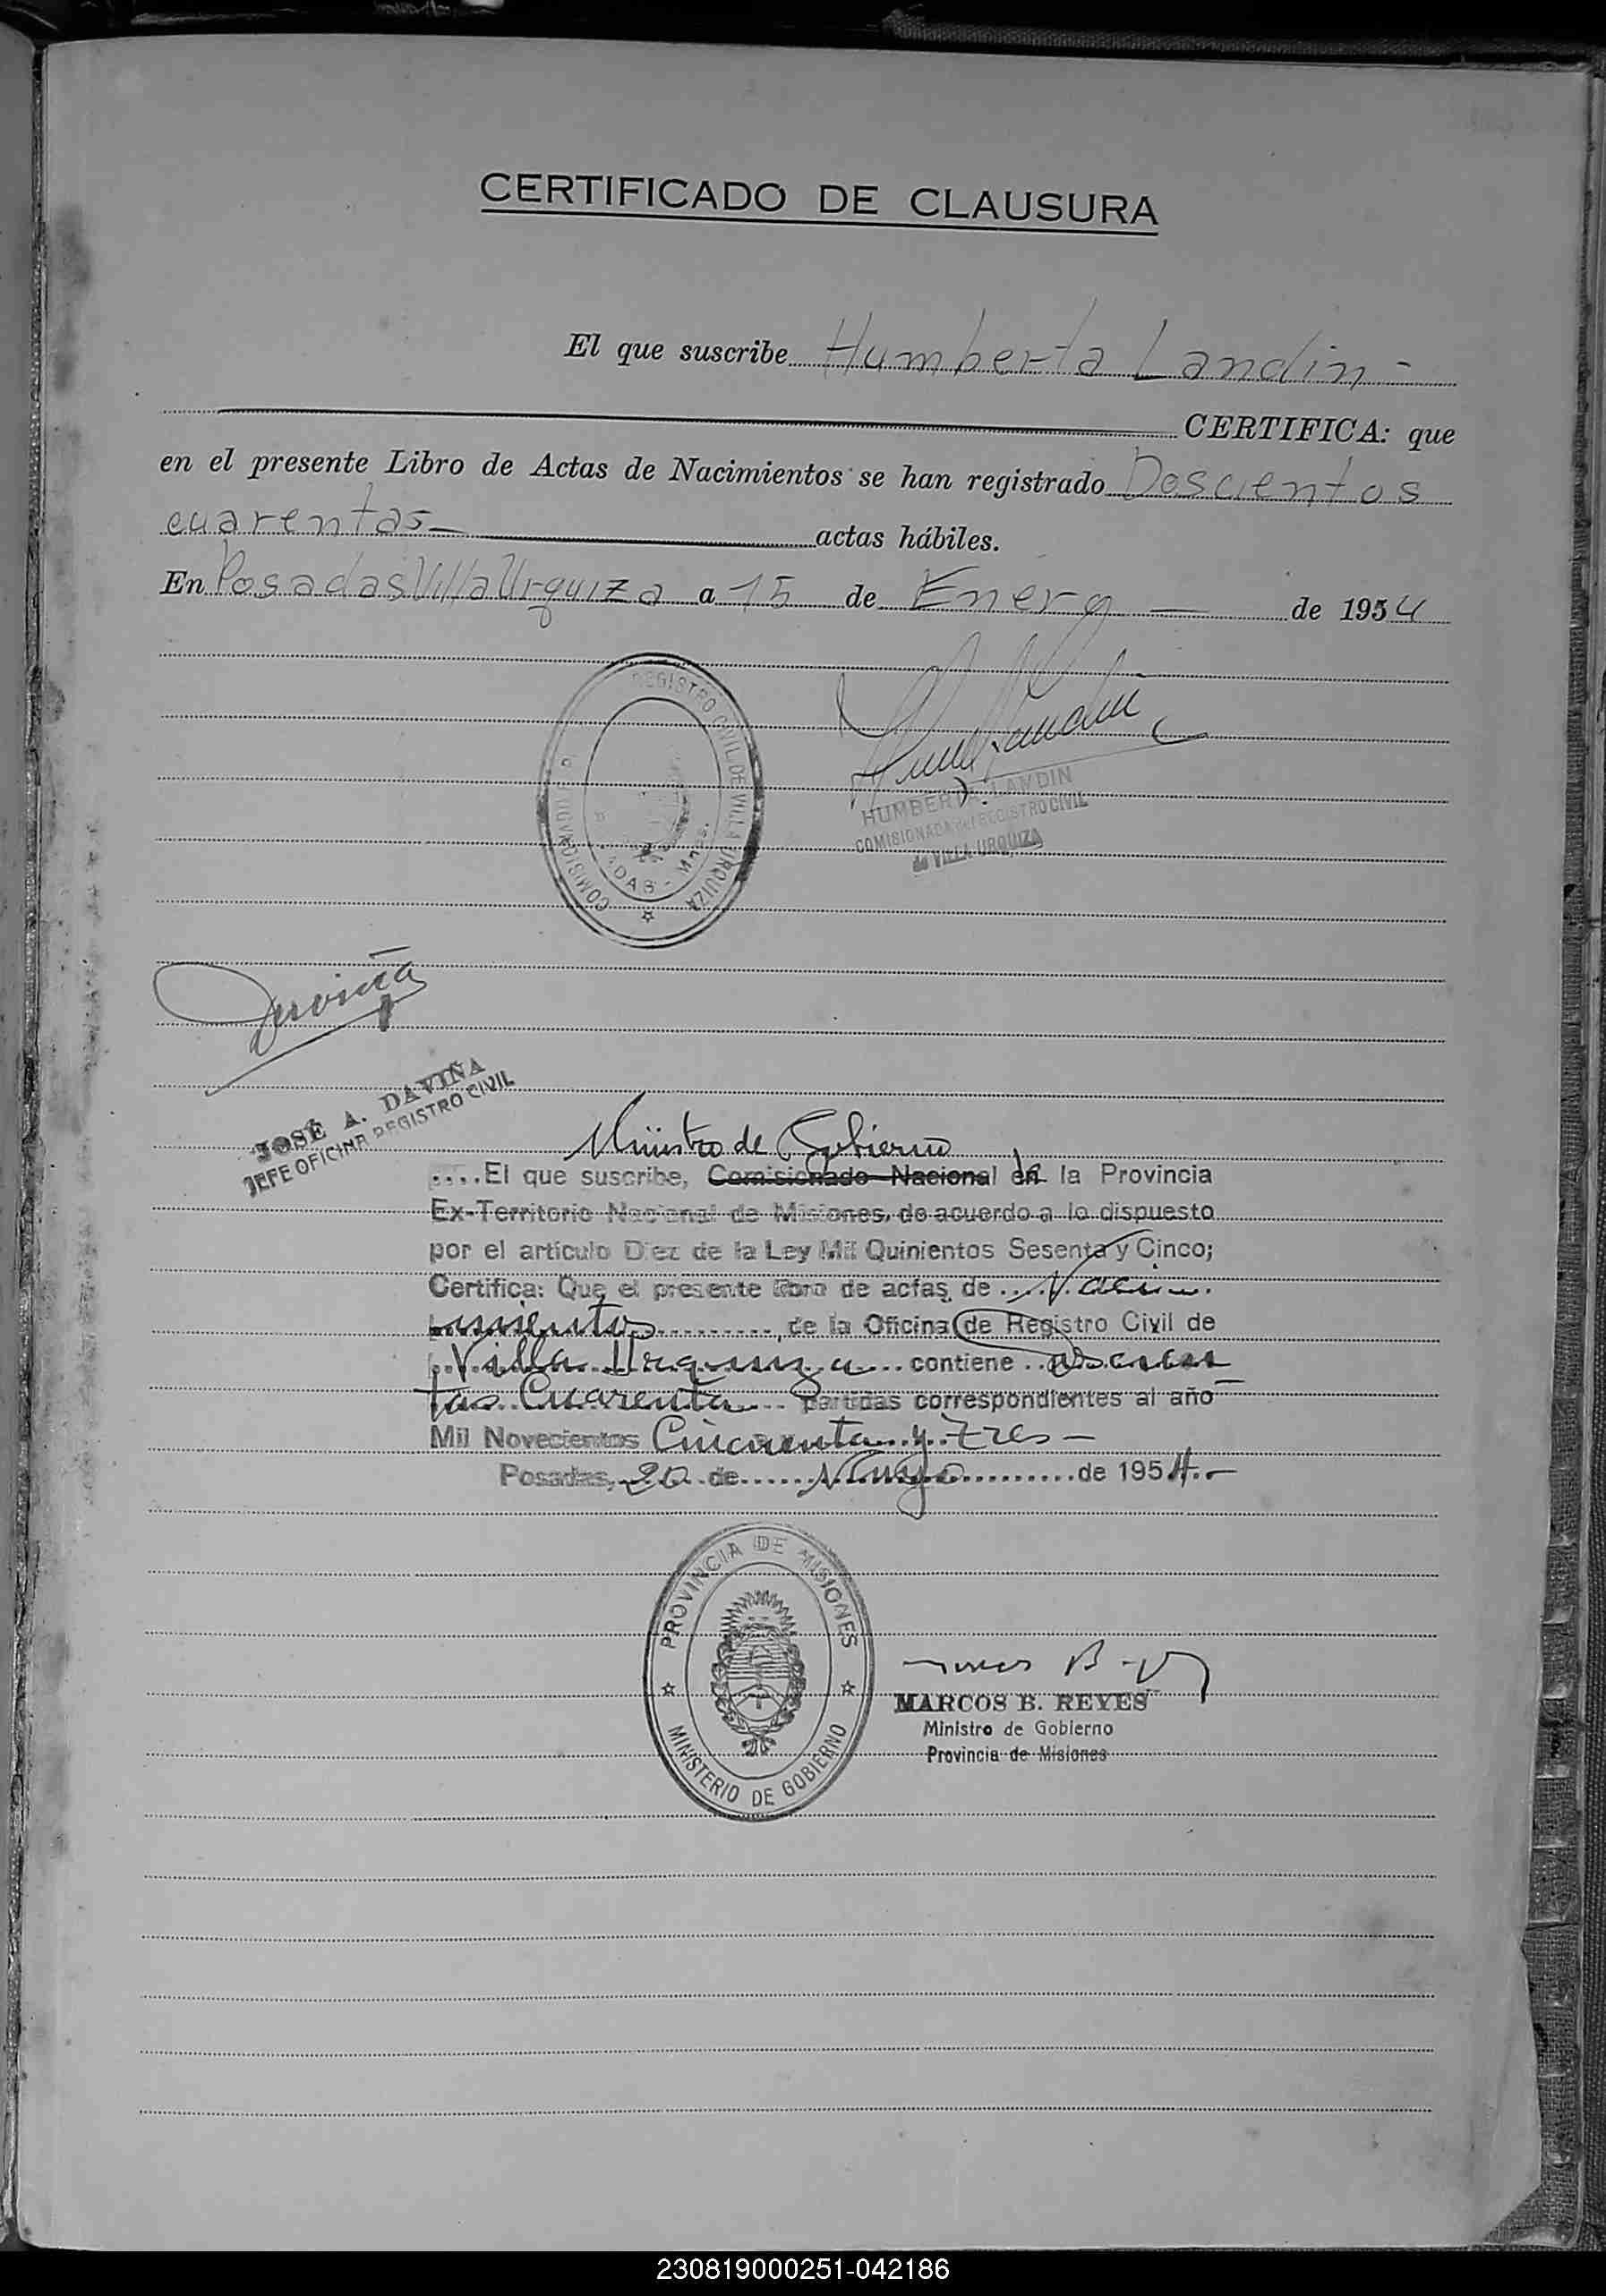 CERTIFICADO DE CLAUSURA
El que suscribe Humberta Landin -
CERTIFICA: que
en el presente Libro de Actas de Nacimientos se han registrado Doscientos
cuarentas actas hábiles.
En Posadas Villa Urquiza a 15 de Enero de 1954
REGISTRO CIVIL DE VILLA URQUIZA
COMISIONADA
DAS - Mnes.
HUMBERTA LANDIN
COMISIONADA del REGISTRO CIVIL
de VILLA URQUIZA
Daviña
JOSÉ A. DAVIÑA
JEFE OFICINA REGISTRO CIVIL
Ministro de Gobierno
....El que suscribe, Comisionado Nacional de la Provincia
Ex-Territorio Nacional de Misiones, de acuerdo a lo dispuesto
por el artículo Diez de la Ley Mil Quinientos Sesenta y Cinco;
Certifica: Que el presente libro de actas de .... Naci-
mientos ........., de la Oficina de Registro Civil de
Villa Urquiza ... contiene .. Doscien
tas Cuarenta ... partidas correspondientes al año
Mil Novecientos Cincuenta y tres -
Posadas, 20 de ...... Mayo .......... de 1954.-
PROVINCIA DE MISIONES
MINISTERIO DE GOBIERNO
Marcos B. Reyes
MARCOS B. REYES
Ministro de Gobierno
Provincia de Misiones
230819000251-042186